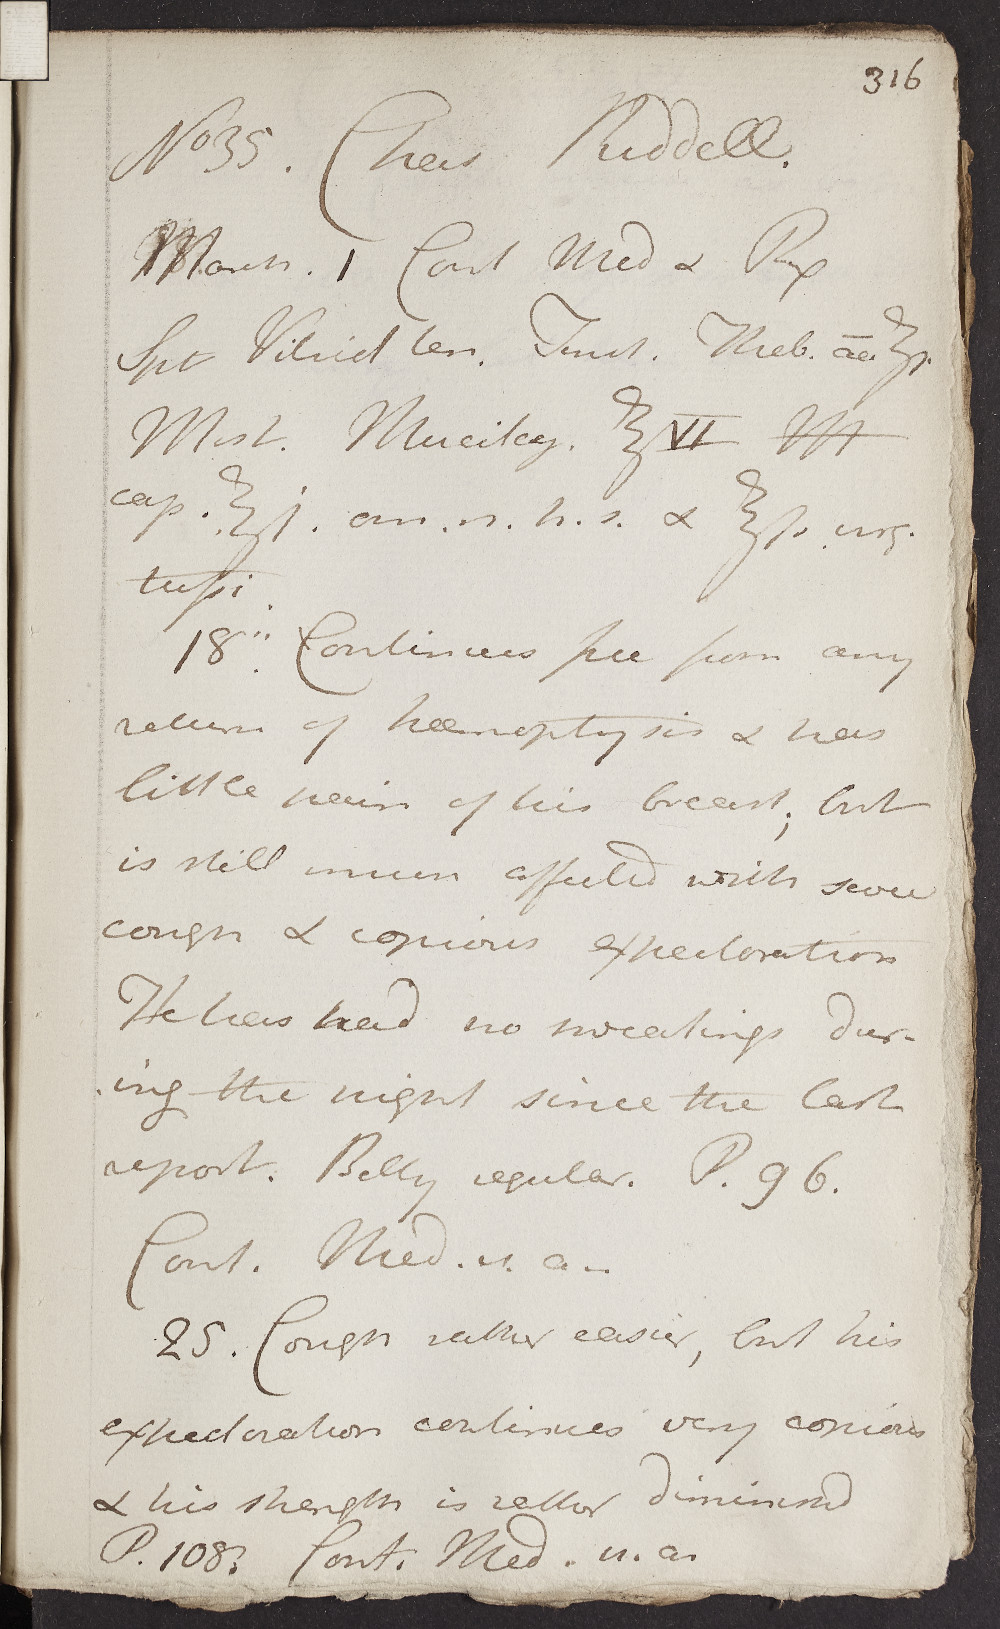 316
No 35. Chas Riddell.
March. 1 Cont Med & Rx
Spt Vitriol ten. Tinct. Theb. āā ʒſs.
Mist. Mucilag. ℥VI
cap. ℥j. om. n. h. s. & ℥ſs. urg.
tuſsi.
18". Continues free from any
return of hæmoptysis & has
little pain of his breast; but
is still much affected with severe
cough & copious expectoration
He has had no sweatings dur-
ing the night since the last
report. Belly regular. P. 96.
Cont. Med. u. a.
25. Cough rather easier, but his
expectoration continues very copious
& his strength is rather diminish'd
P. 108. Cont. Med. u. a.